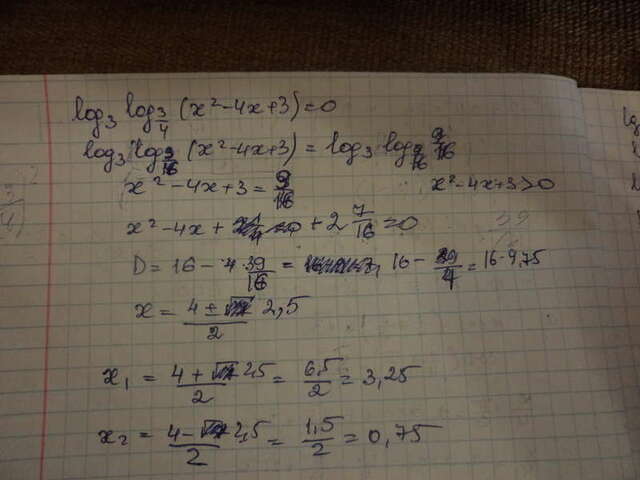 log₃ log_{3/4} (x²-4x+3)=0
log₃ log_{9/16} (x²-4x+3) = log₃ log_{9/16} 9/16
x² - 4x+3 = 9/16 x²-4x+3>0
x² - 4x + + 2 7/16 = 0
D = 16 - 4·39/16 = 16 - 39/4 = 16-9,75
x = (4 ± 2,5)/2
x₁ = (4 + 2,5)/2 = 6,5/2 = 3,25
x₂ = (4 - 2,5)/2 = 1,5/2 = 0,75